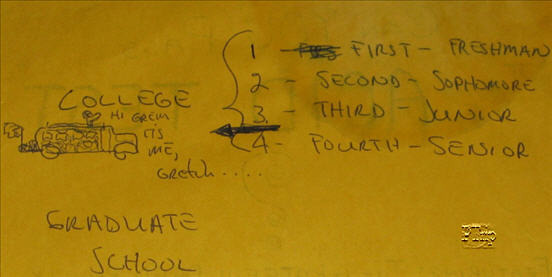 1 - FIRST - FRESHMAN
2 - SECOND - SOPHOMORE
3 - THIRD - JUNIOR
4 - FOURTH - SENIOR
COLLEGE
HI
IT'S
ME,
Gretch.....
GRADUATE
SCHOOL